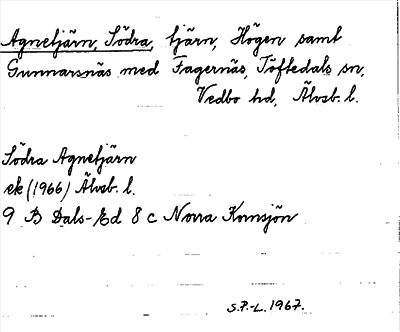 Agnetjärn, Södra, tjärn, Högen samt
Gunnarsnäs med Fagernäs, Töftedals sn,
Vedbo hd, Älvsb. l.
Södra Agnetjärn
ek (1966) Älvsb. l.
9 B Dals-Ed 8 c Norra Kornsjön
S.P.-L. 1967.